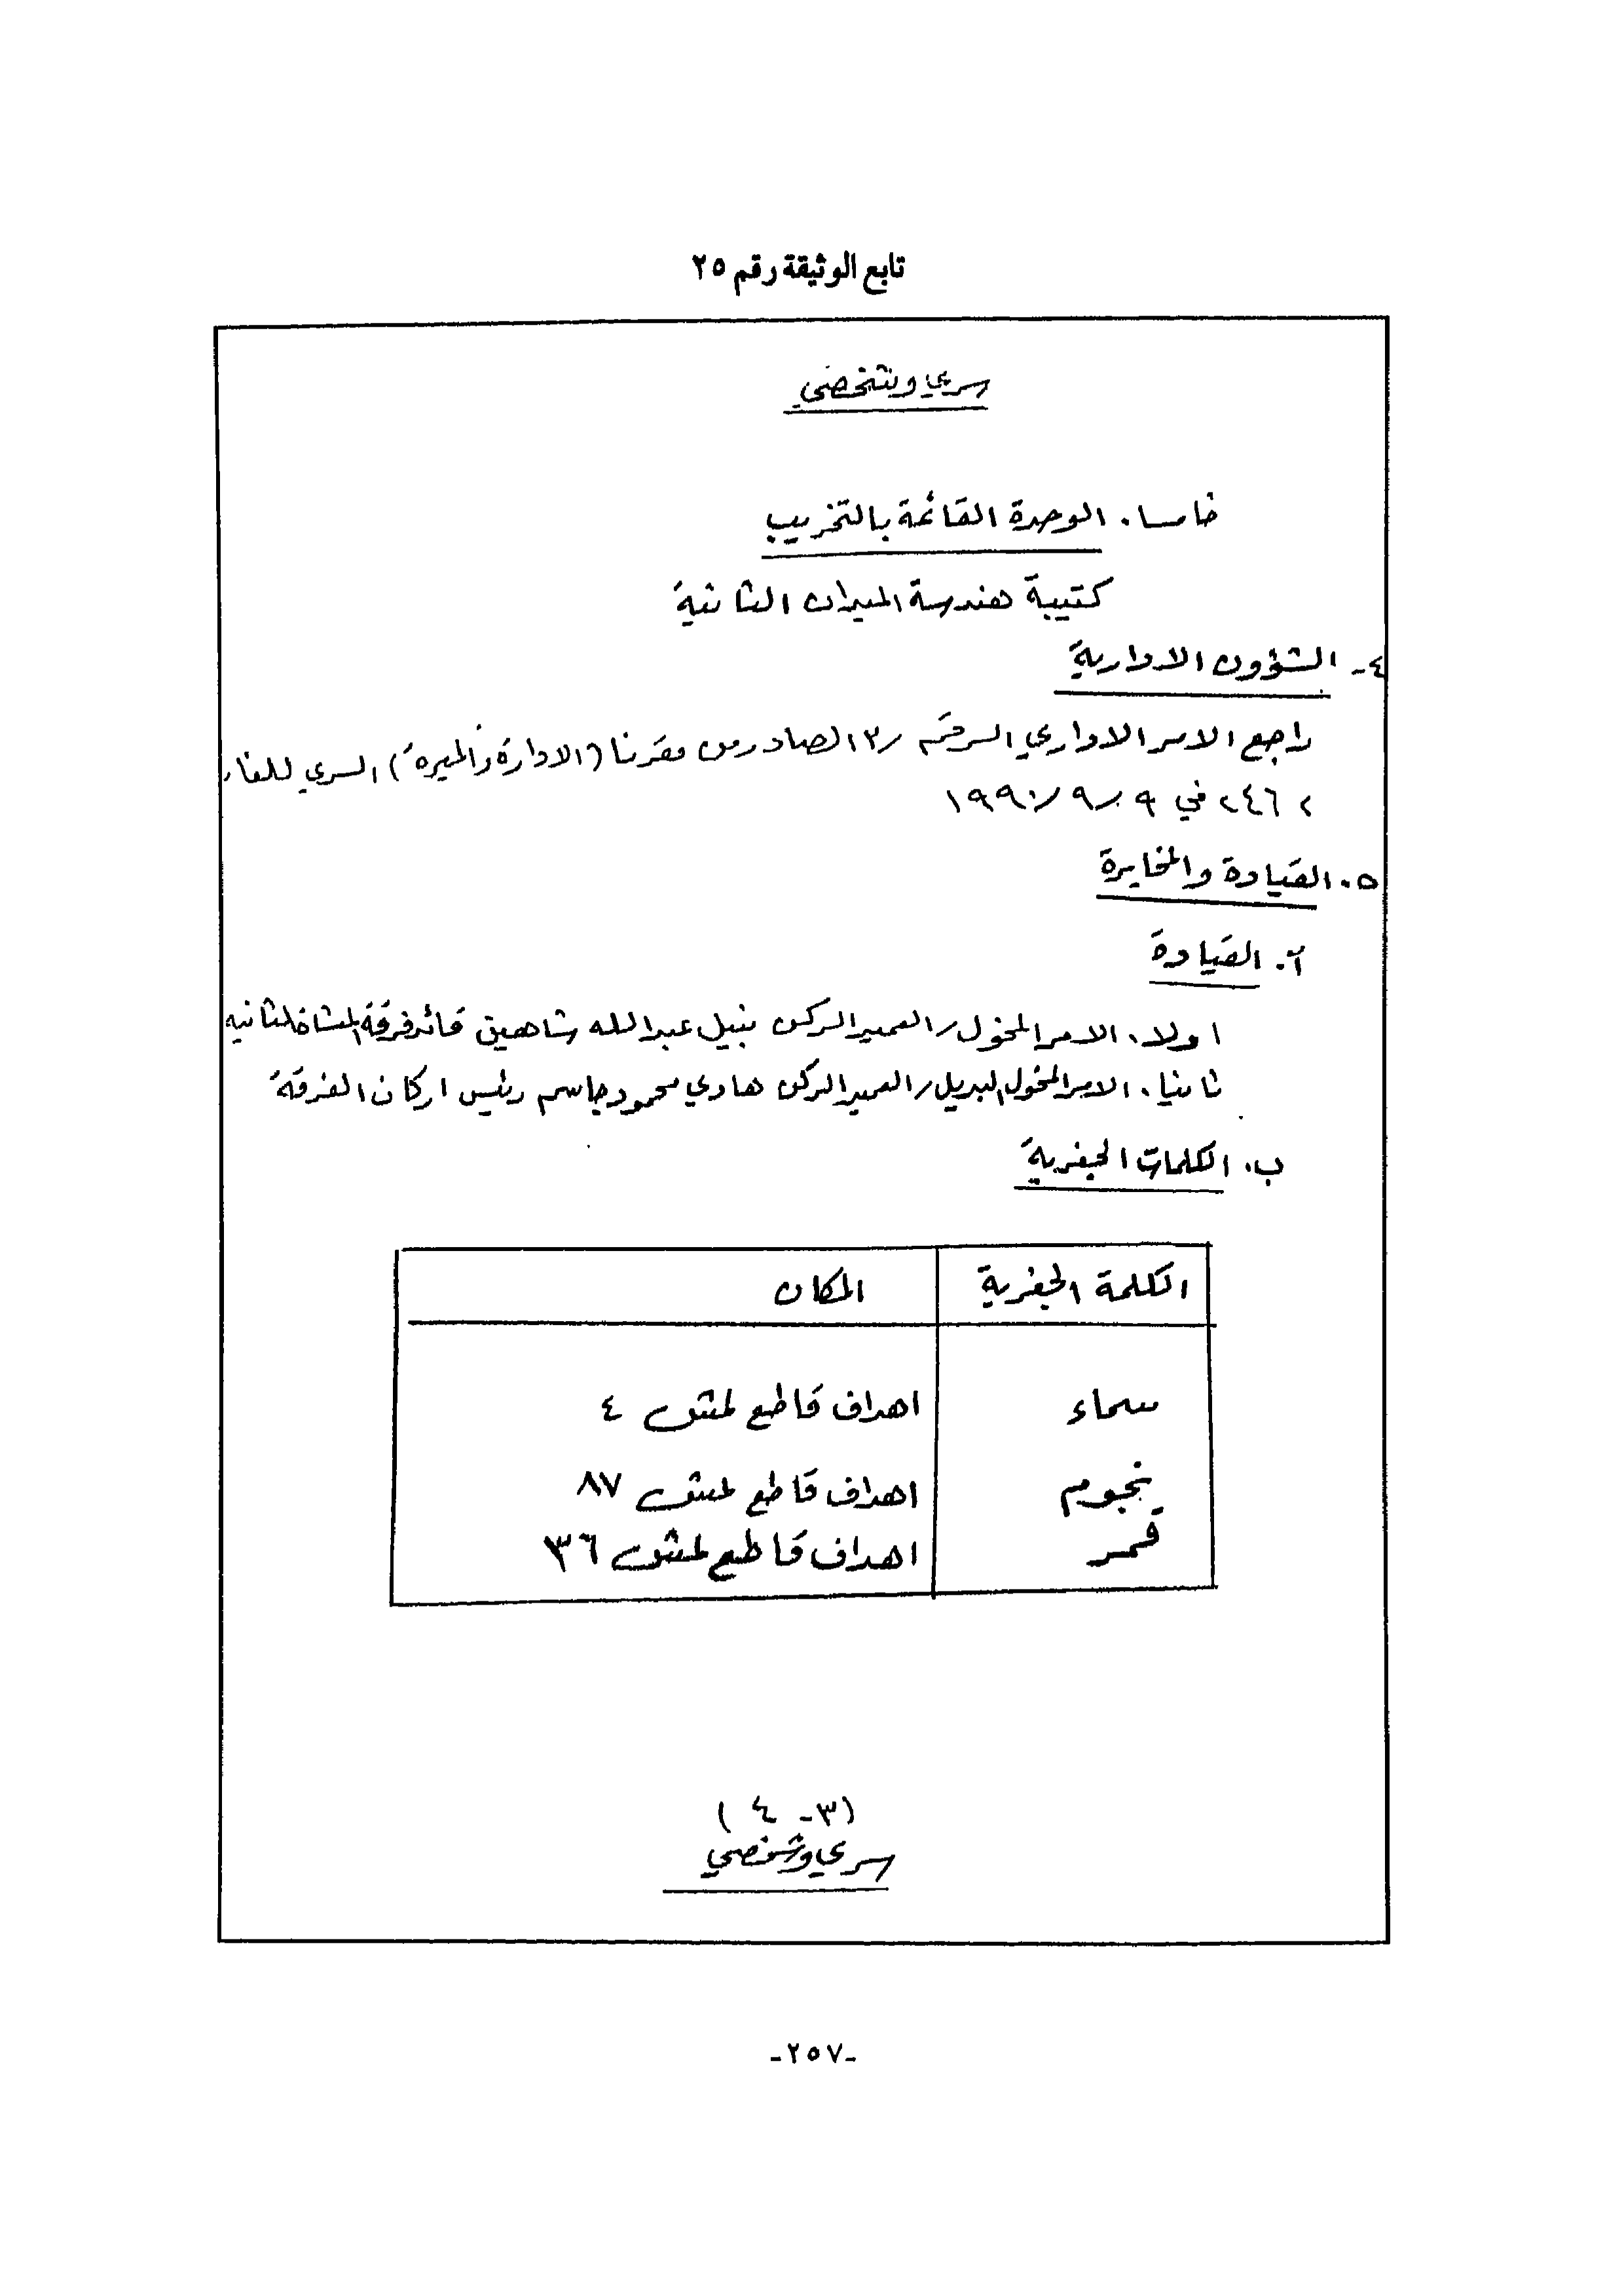 تابع الوثيقة رقم ٢٥
سري وشخصي
خامسا. الوحدة القائمة بالتخريب
كتيبة هندسة الميدان الثانية
٤- الشؤون الادارية
راجع الامر الاداري المرقم /٣ الصادر من مقرنا (الادارة والميرة) السري للغا
٢٤٦٢ في ٩/٩/١٩٩٠
٥. القيادة والمخابرة
أ. القيادة
اولا. الامر المخول/ العميد الركن نبيل عبدالله شاهين قائد فرقة المشاة الثانية
ثانيا. الامر المخول البديل/ العميد الركن هادي محمود جاسم رئيس اركان الفرقة
ب. الكلمات الجفرية
الكلمة الجفرية المكان
سماء اهداف قاطع لمش ٤
نجوم اهداف قاطع لمش ٨٧
قمر اهداف قاطع لمش ٣٦
(٣-٤)
سري وشخصي
-٢٥٧-